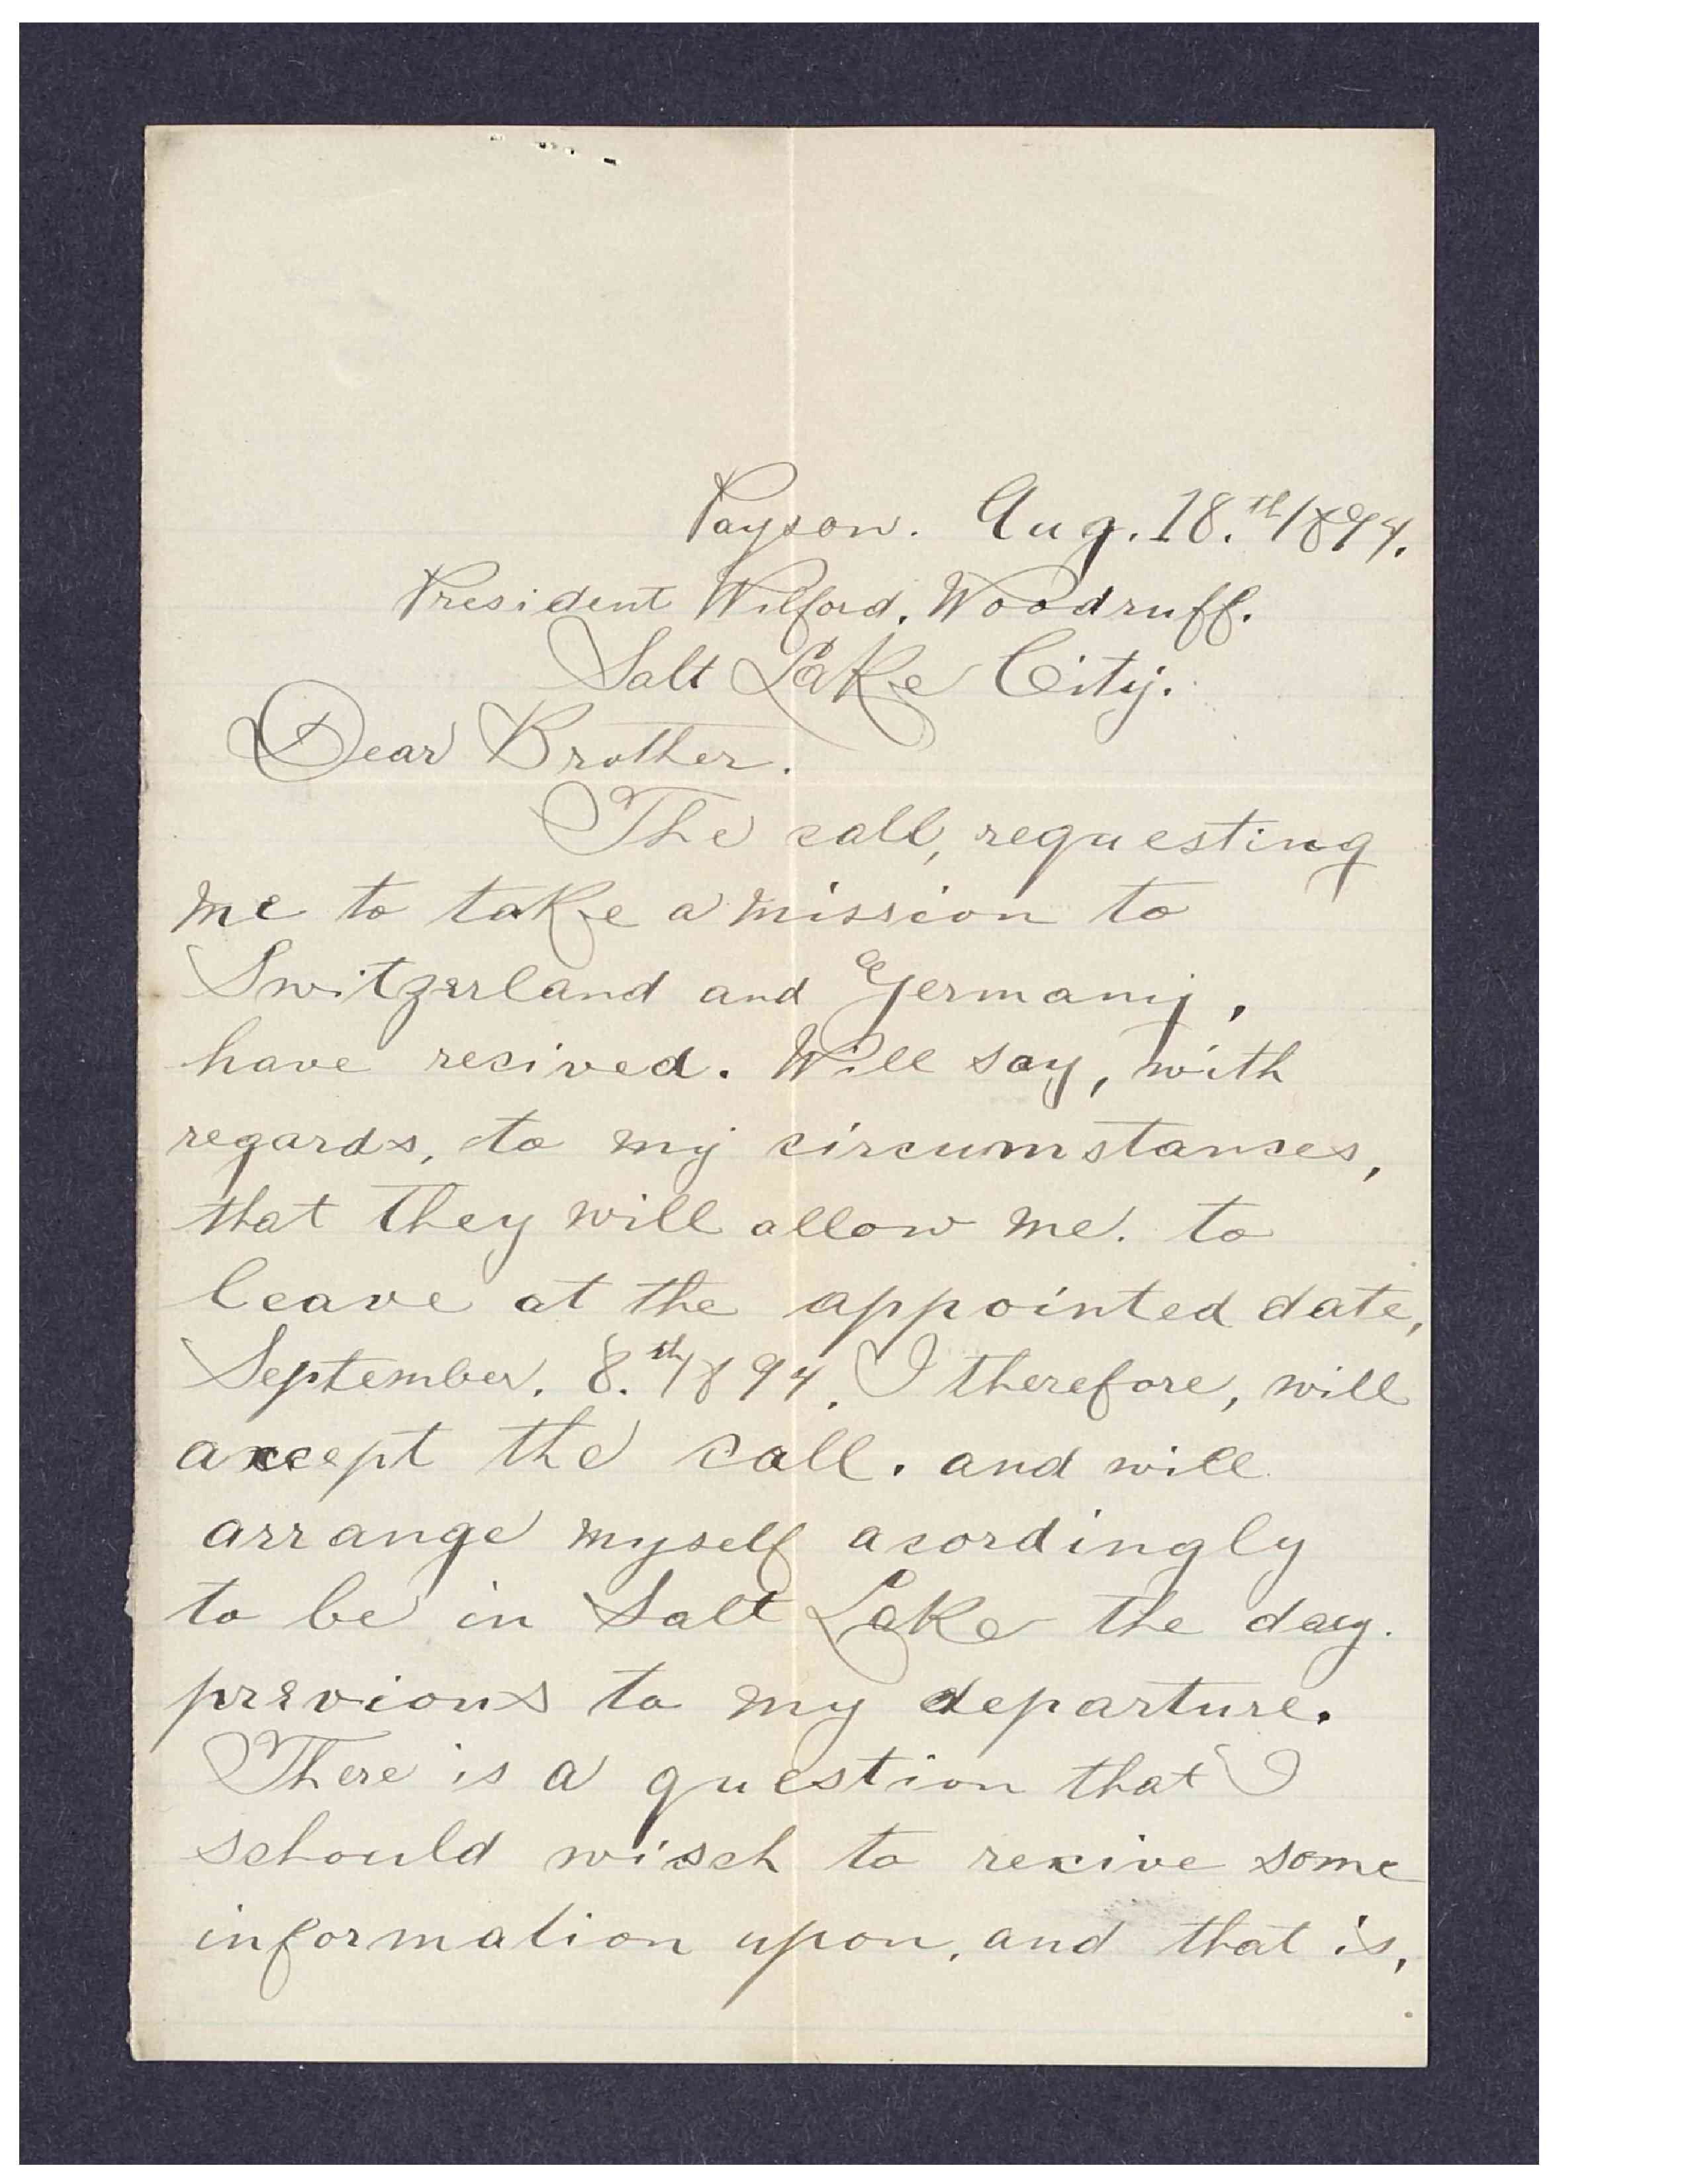 Payson. Aug. 18.th/1894.
President Wilford. Woodruff.
Salt Lake City.
Dear Brother.
The call, requesting
me to take a mission to
Switzerland and Germany,
have recived. Will say, with
regards, to my circumstances,
that they will allow me. to
leave at the appointed date,
September. 8.th/1894. I therefore, will
accept the call. and will
arrange myself acordingly
to be in Salt Lake the day.
previous to my departure.
There is a question that I
schould wisch to recive some
information upon, and that is,